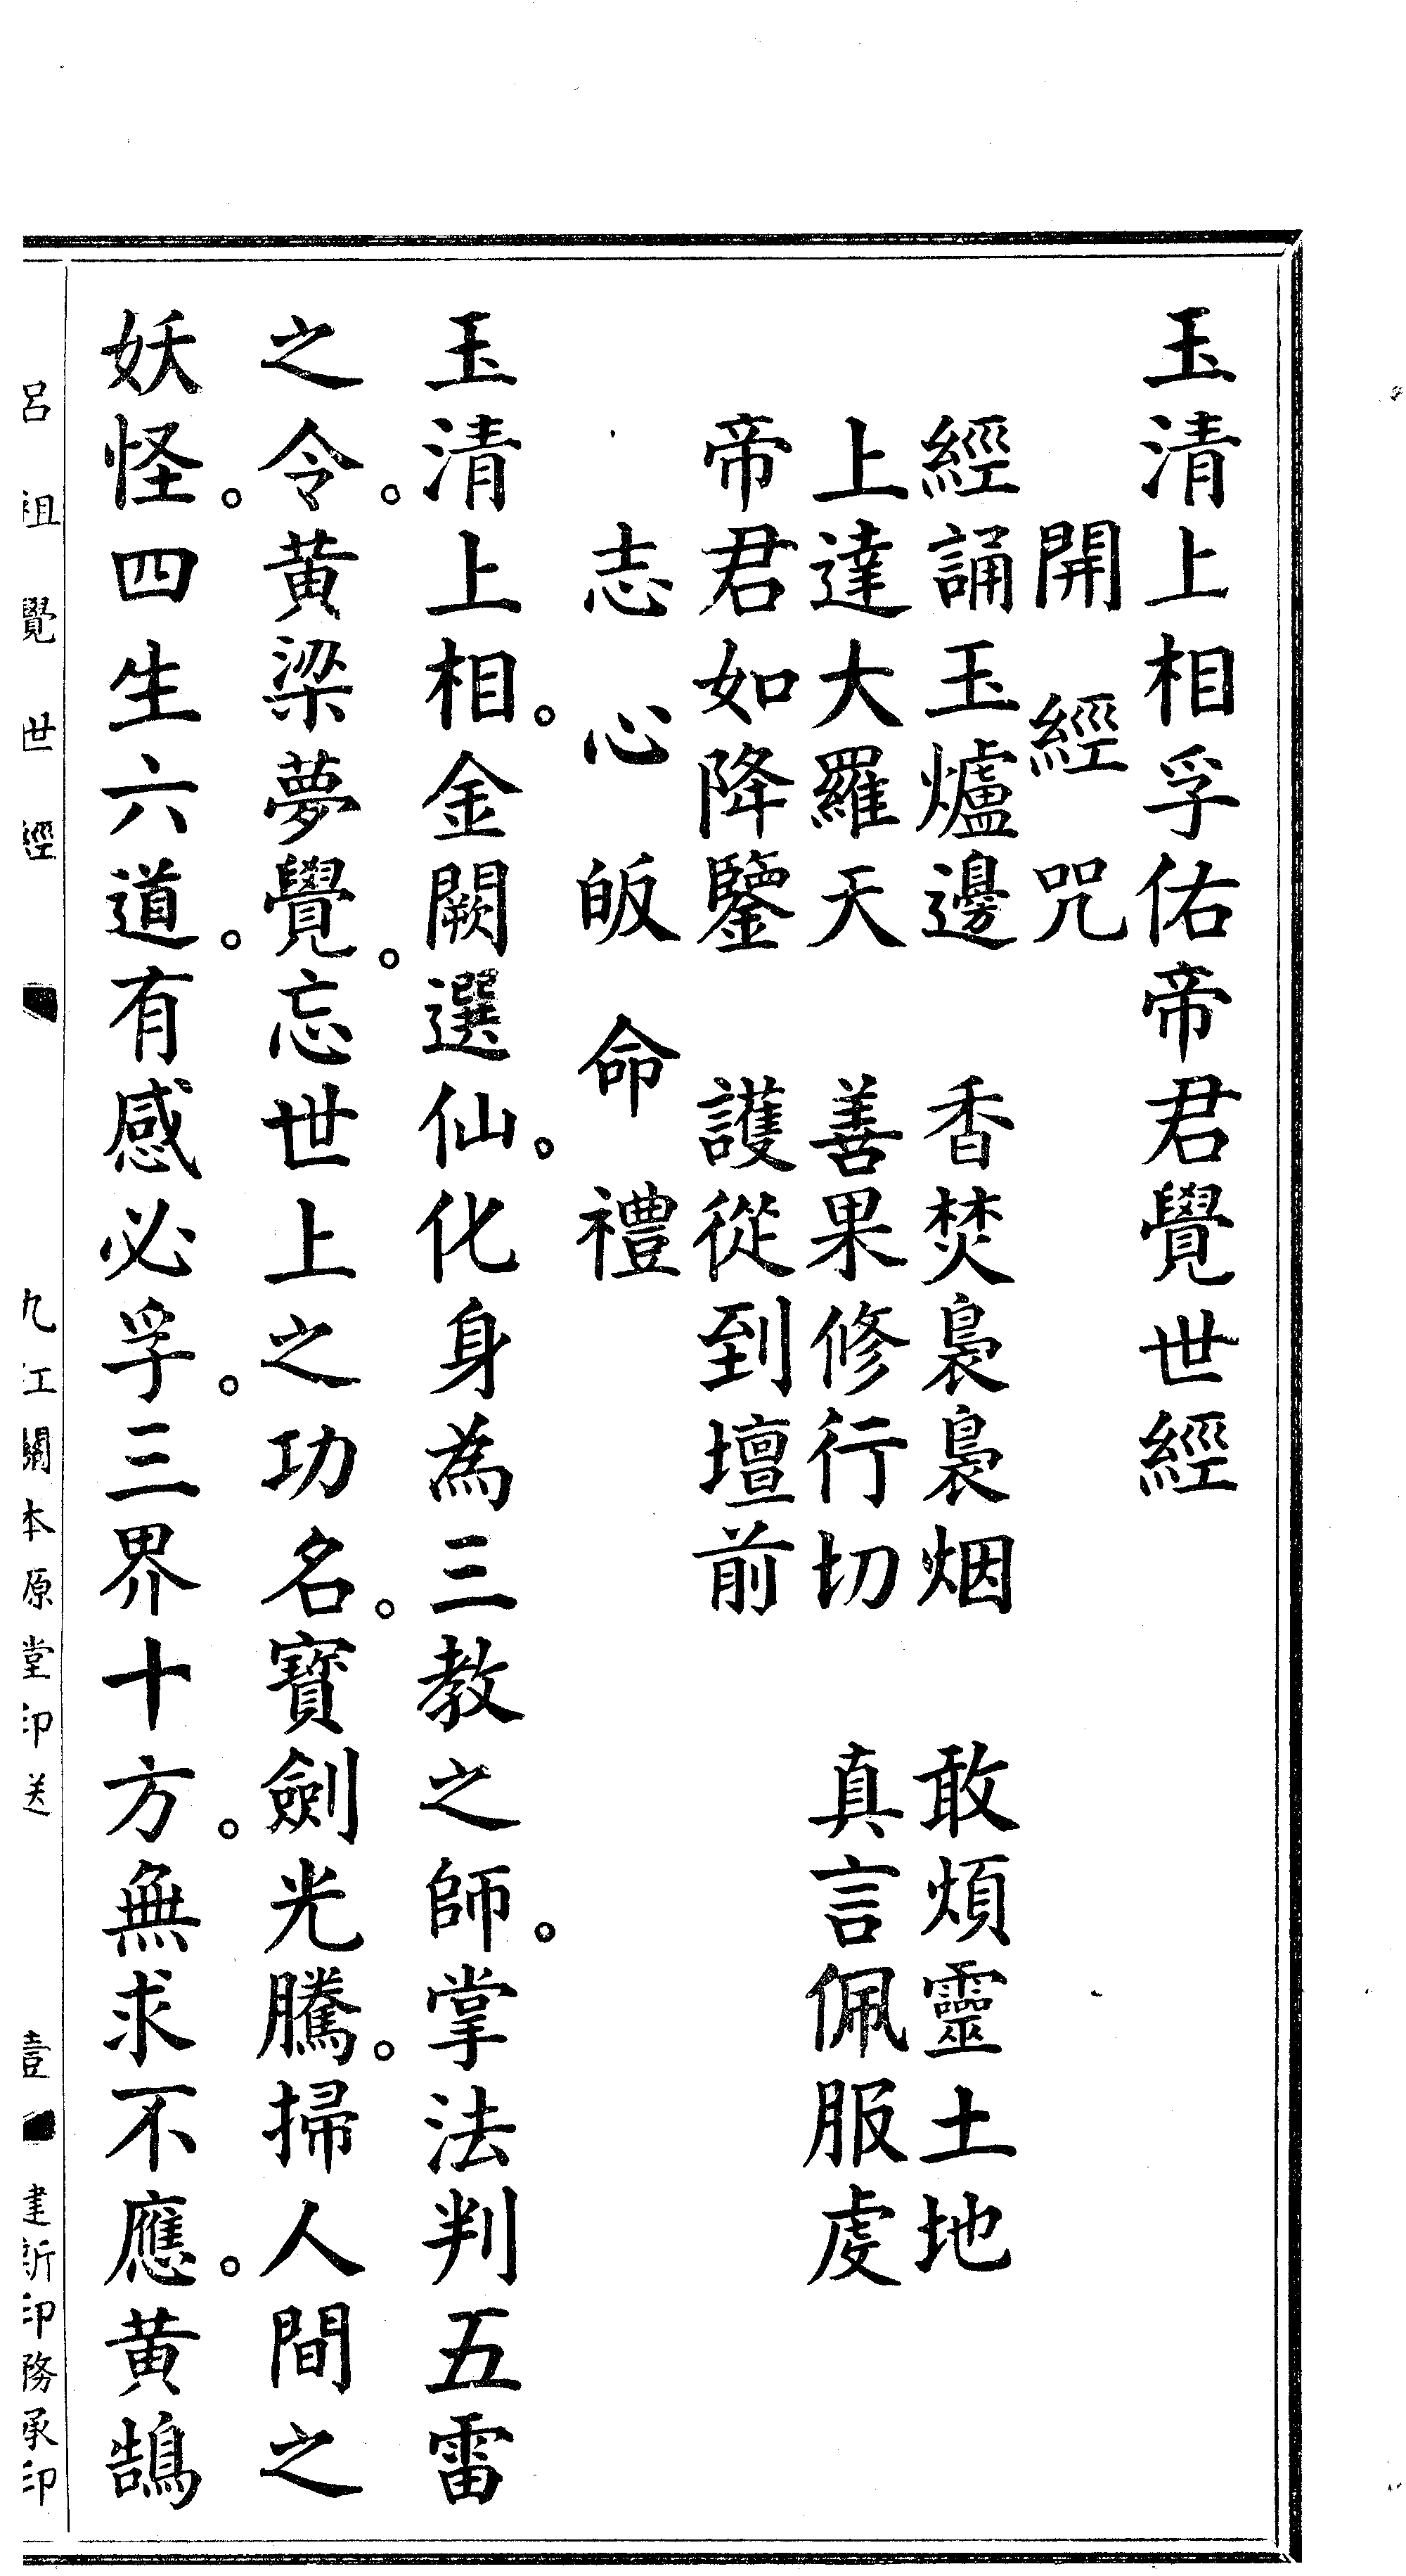 玉清上相孚佑帝君覺世經
開經咒
經誦玉爐邊　香焚裊裊烟　敢煩靈土地
上達大羅天　善果修行切　真言佩服虔
帝君如降鑒　護從到壇前
志心皈命禮
玉清上相。金闕選仙。化身為三教之師。掌法判五雷
之令。黄梁夢覺。忘世上之功名。寳劍光騰。掃人間之
妖怪。四生六道。有感必孚。三界十方。無求不應。黄鵠
呂祖覺世經　九江關本原堂印送　壹　建新印務承印